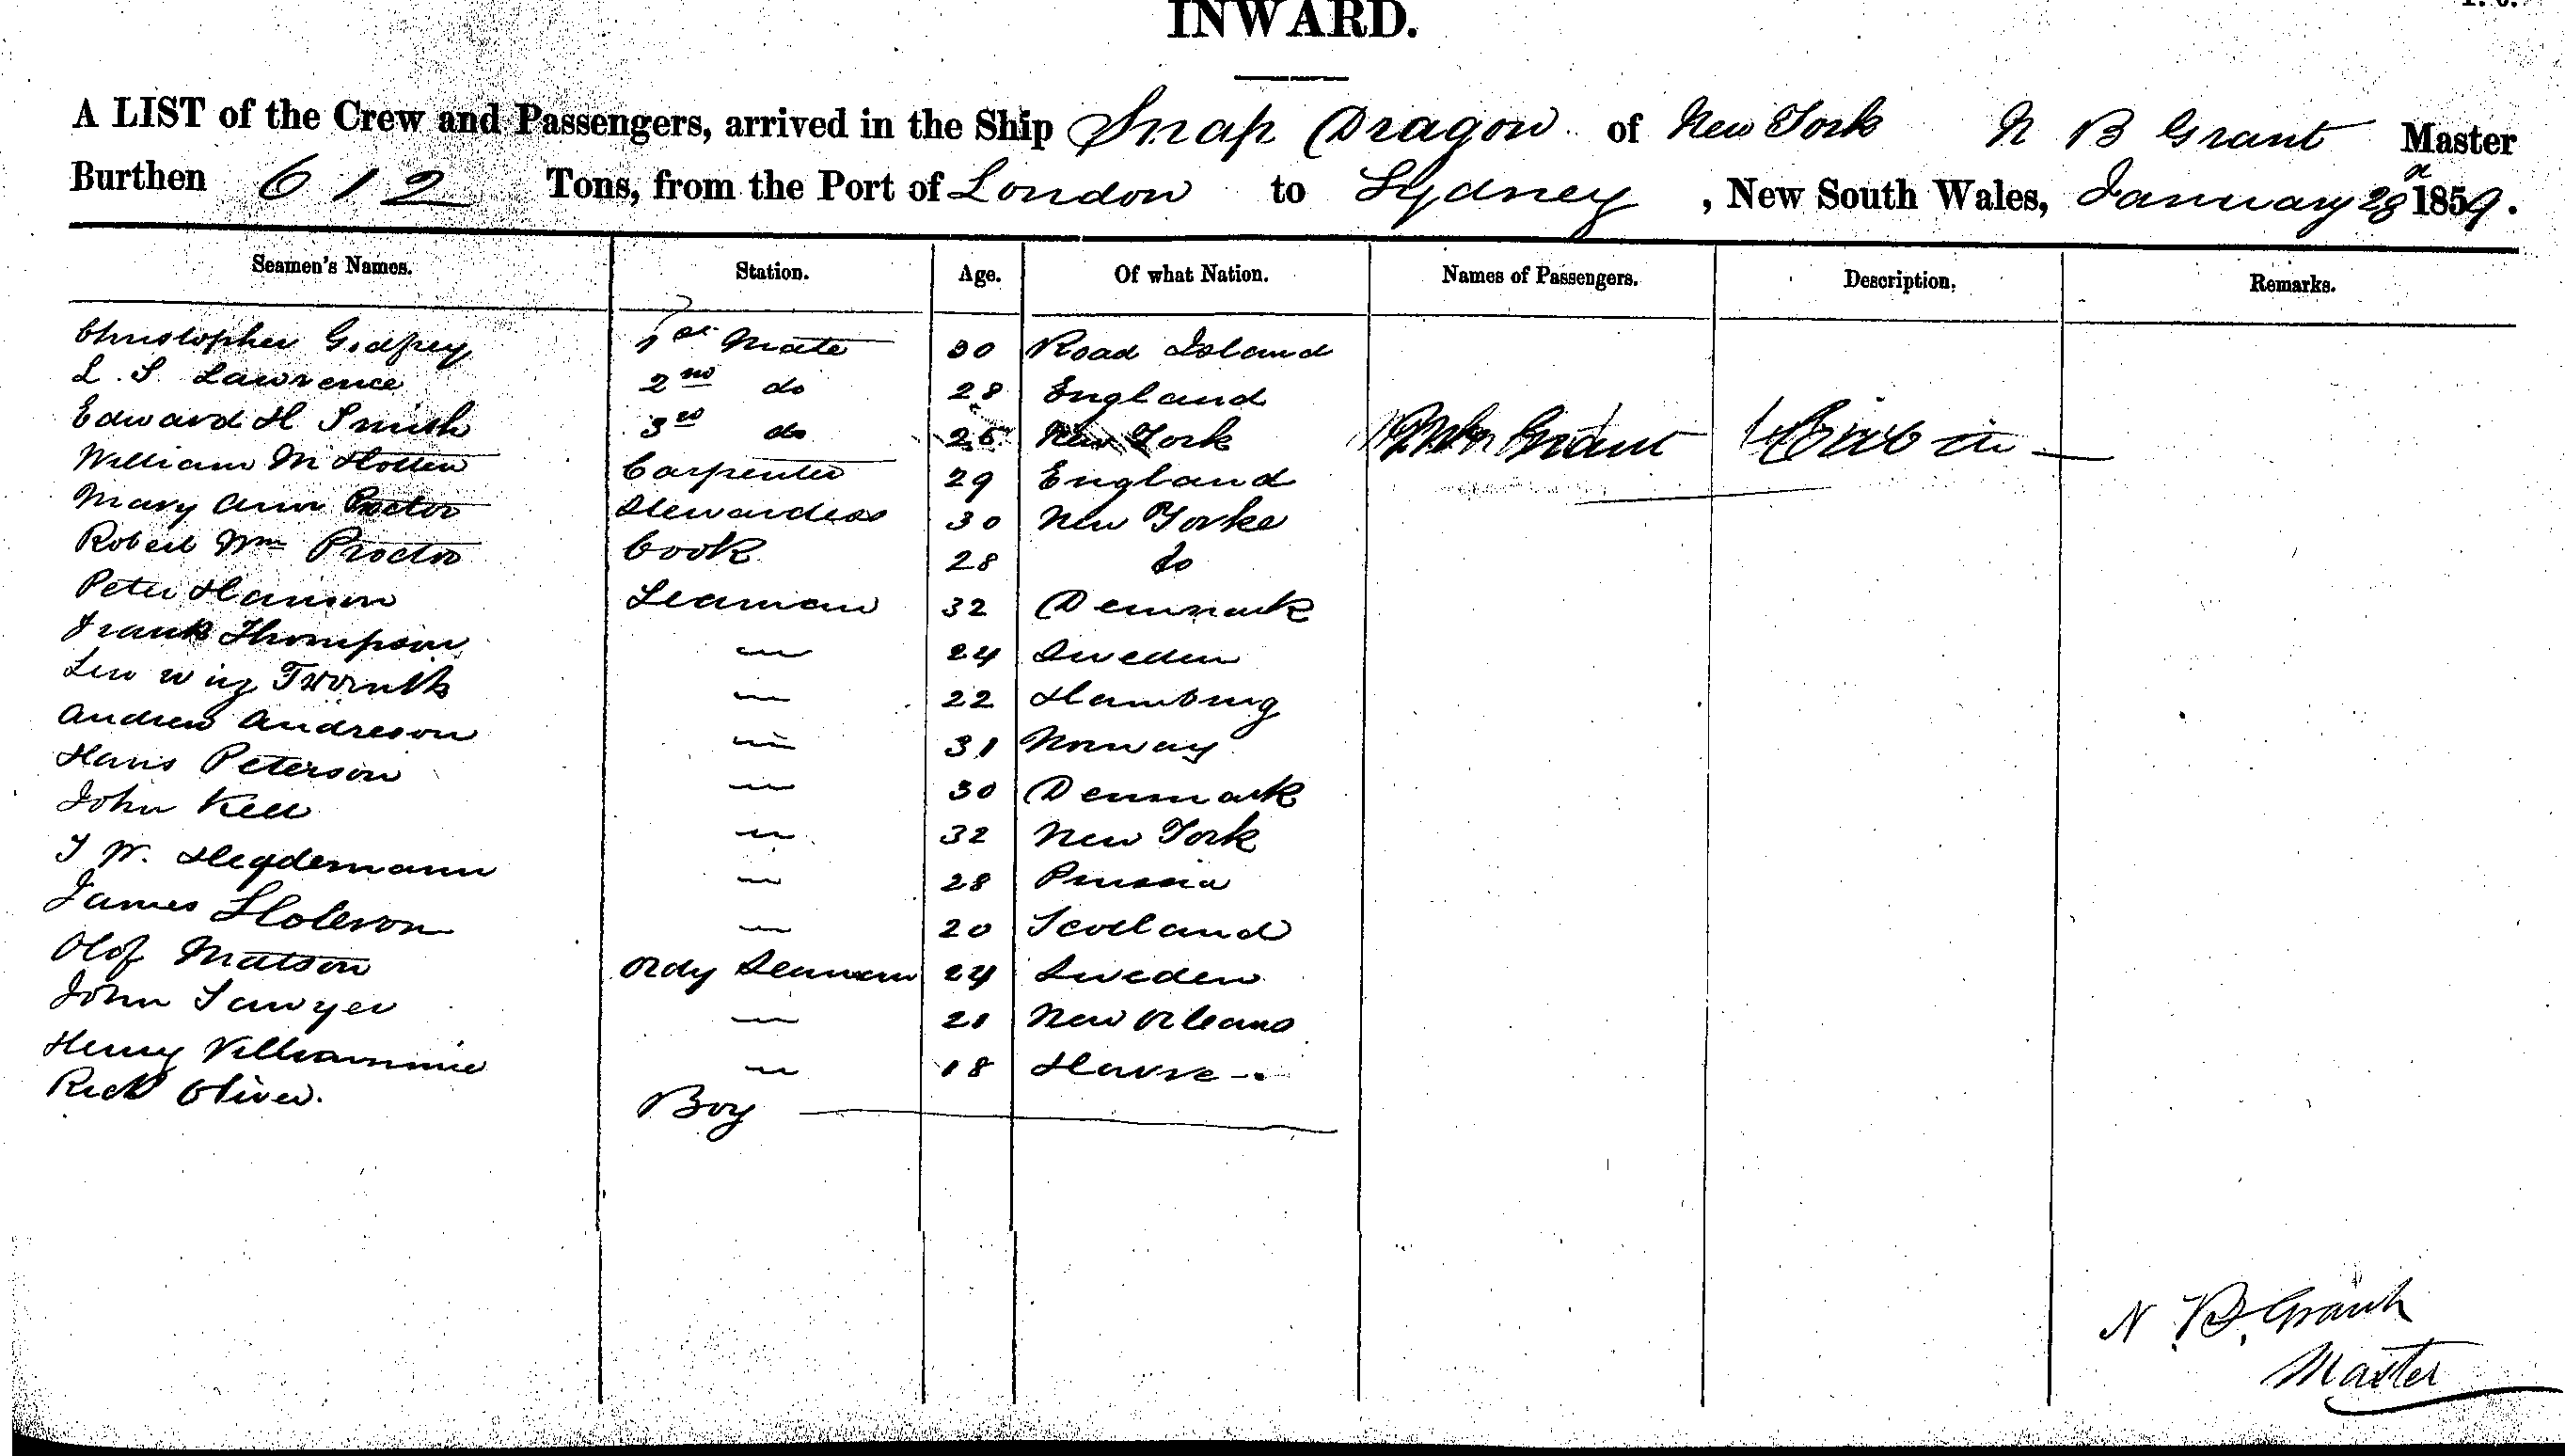 INWARD.
A LIST of the Crew and Passengers, arrived in the Ship Snap Dragon of New York N B Grant Master
Burthen 612 Tons, from the Port of London to Sydney, New South Wales, January 28 1859.
Seamen's Names. Station. Age. Of what Nation. Names of Passengers. Description. Remarks.
Christopher Godfrey 1st Mate 30 Road Island
L. S. Lawrence 2nd do 28 England
Edward H Smith 3rd do 25 New York Grant Cabin
William M Hollen Carpenter 29 England
Mary Ann Proctor Stewardess 30 New Yorke
Robert Wm Proctor Cook 28 do
Peter Hanson Seaman 32 Denmark
Frank Thompson — 24 Sweden
— 22 Hamburg
Andrew Andreson — 31 Norway
Hans Peterson — 30 Denmark
John Kell — 32 New York
W. Hegdemann — 28 Prussia
James — 20 Scotland
Olof Matson Ordy Seaman 24 Sweden
John Sawyer — 21 New Orleans
Henry — 18 Havre
Richd Oliver. Boy
N. B. Grant
Master